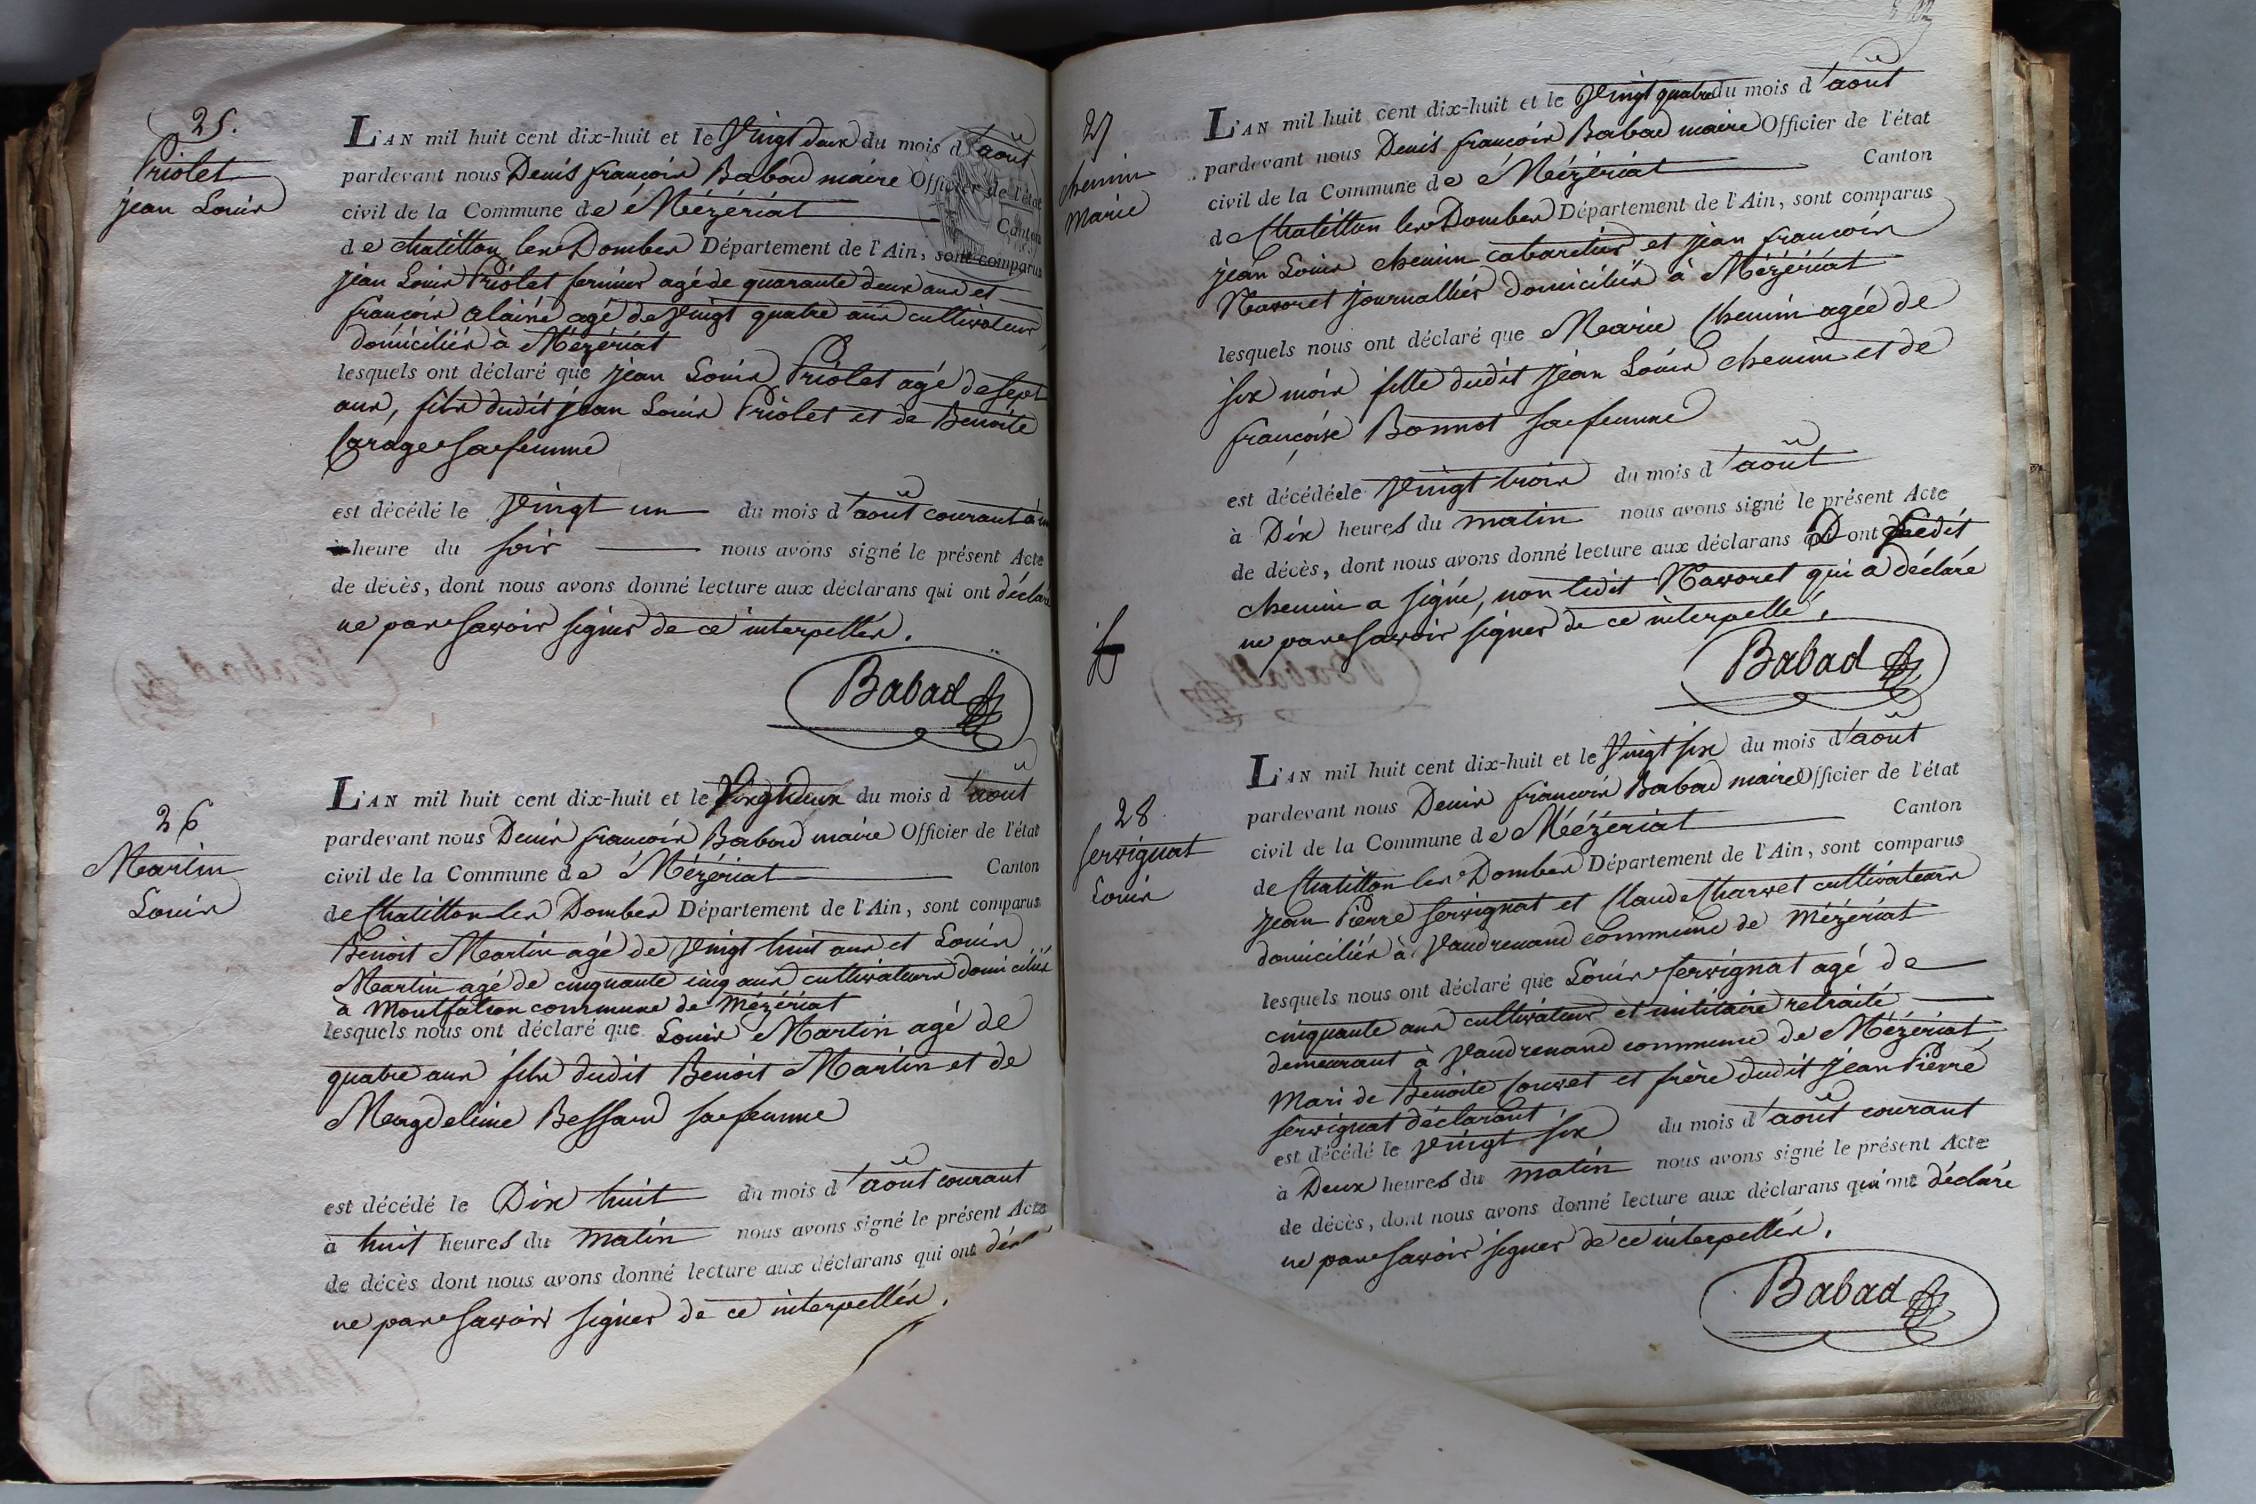 25.
Priolet
jean Louis
L'AN mil huit cent dix-huit et le Vingt deux du mois d'août
pardevant nous Denis françois Babad maire Officier de l'état
civil de la Commune de Mézériat Canton
de chatillon les Dombes Département de l'Ain, sont comparus
jean Louis Priolet fermier agé de quarante deux ans et
françois alainé agé de vingt quatre ans cultivateurs
domiciliés à Mézériat
lesquels ont déclaré que jean Louis Priolet agé de sept
ans, fils dudit jean Louis Priolet et de Benoite
sa femme
est décédé le vingt un du mois d'août courant à
heure du soir nous avons signé le présent Acte
de décès, dont nous avons donné lecture aux déclarans qui ont déclaré
ne pas savoir signer de ce interpellés.
Babad
26
Martin
Louis
L'AN mil huit cent dix-huit et le Vingtdeux du mois d'août
pardevant nous Denis françois Babad maire Officier de l'état
civil de la Commune de Mézériat Canton
de Chatillon les Dombes Département de l'Ain, sont comparus
Benoit Martin agé de vingt huit ans et Louis
Martin agé de cinquante cinq ans cultivateurs domiciliés
à Montfalcon commune de Mézériat
lesquels nous ont déclaré que Louis Martin agé de
quatre ans fils dudit Benoit Martin et de
Magdeleine Bessard sa femme
est décédé le Dix huit du mois d'août courant
à huit heures du matin nous avons signé le présent Acte
de décès dont nous avons donné lecture aux déclarans qui ont
ne pas savoir signer de ce interpellés.
27
chemin
Marie
L'AN mil huit cent dix-huit et le Vingt quatre du mois d'août
pardevant nous Denis françois Babad maire Officier de l'état
civil de la Commune de Mézériat Canton
de Chatillon les Dombes Département de l'Ain, sont comparus
jean Louis chemin cabaretier et jean françois
Navoret journallier domiciliés à Mézériat
lesquels nous ont déclaré que Marie Chemin agée de
six mois fille dudit jean Louis chemin et de
françoise Bonnot sa femme
est décédée le vingt trois du mois d'août
à Dix heures du matin nous avons signé le présent Acte
de décès, dont nous avons donné lecture aux déclarans Dont ledit
chemin a signé, non ledit Navoret qui a déclaré
ne pas savoir signer de ce interpellé.
Babad
28
servignat
Louis
L'AN mil huit cent dix-huit et le Vingt six du mois d'août
pardevant nous Denis françois Babad maire Officier de l'état
civil de la Commune de Mézériat Canton
de Chatillon les Dombes Département de l'Ain, sont comparus
jean Pierre servignat et Claude Charvet cultivateurs
domiciliés à Vaudrenand commune de Mézériat
lesquels nous ont déclaré que Louis servignat agé de
cinquante ans cultivateur et militaire retraité
demeurant à Vaudrenand commune de Mézériat
Mari de Benoite Couvet et frère dudit jean Pierre
servignat déclarant
est décédé le vingt six du mois d'août courant
à Deux heures du matin nous avons signé le présent Acte
de décès, dont nous avons donné lecture aux déclarans qui ont déclaré
ne pas savoir signer de ce interpellés.
Babad